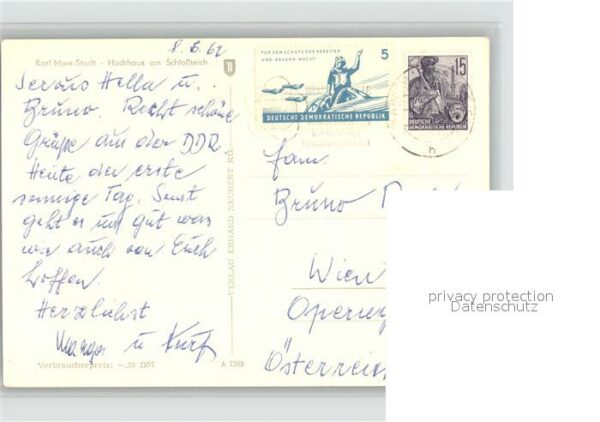 8.6.62
Karl-Marx-Stadt - Hochhaus am Schloßteich
Servus Hella u.
Bruno. Recht schöne
Grüße aus der DDR
Heute der erste
sonnige Tag. Sonst
geht es uns gut was
wir auch von Euch
hoffen.
Herzlichst
u Kurt
Verbraucherpreis: —,20 DM
A 7209
VERLAG ERHARD NEUBERT KG.
FÜR DEN SCHUTZ DER ARBEITER-
UND BAUERN-MACHT
5
DEUTSCHE DEMOKRATISCHE REPUBLIK
15
DEUTSCHE
DEMOKRATISCHE REPUBLIK
h
Fam.
Bruno
Wien
Österreich
privacy protection
Datenschutz